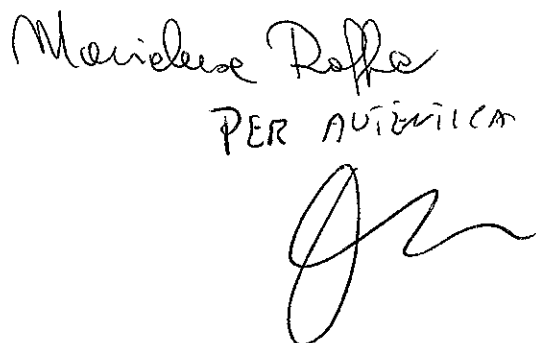 Marialuisa Raffa
PER AUTENTICA